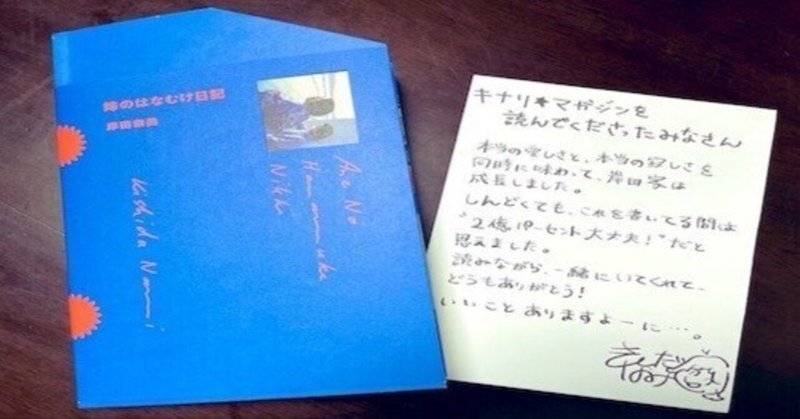 姉のはなむけ日記
岸田奈美
Ane No
Hanamuke
Nikki
Kishida Nami
キナリ★マガジンを
読んでくださったみなさん
本当の愛しさと、本当の寂しさを
同時に味わって、岸田家は
成長しました。
しんどくても、これを書いてる間は
"2億パーセント大丈夫!"だと
思えました。
読みながら、一緒にいてくれて、
どうもありがとう!
いいことありますよーに…。